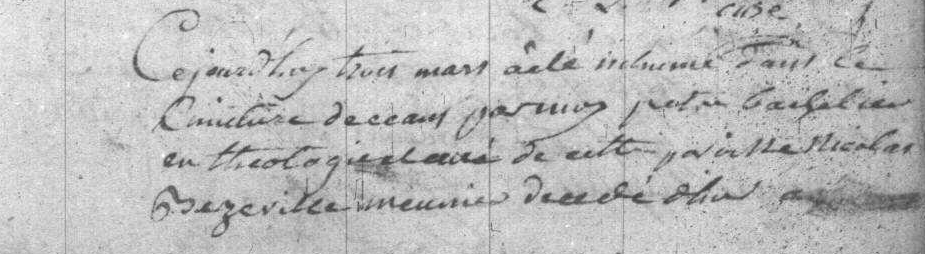 curé
Cejourd'huy trois mars à été inhumé dans le
Cimitiere de ceans par moy pretre bachelier
en theologie et curé de cette paroisse Nicolas
Bezeville meunier decedé d'hier